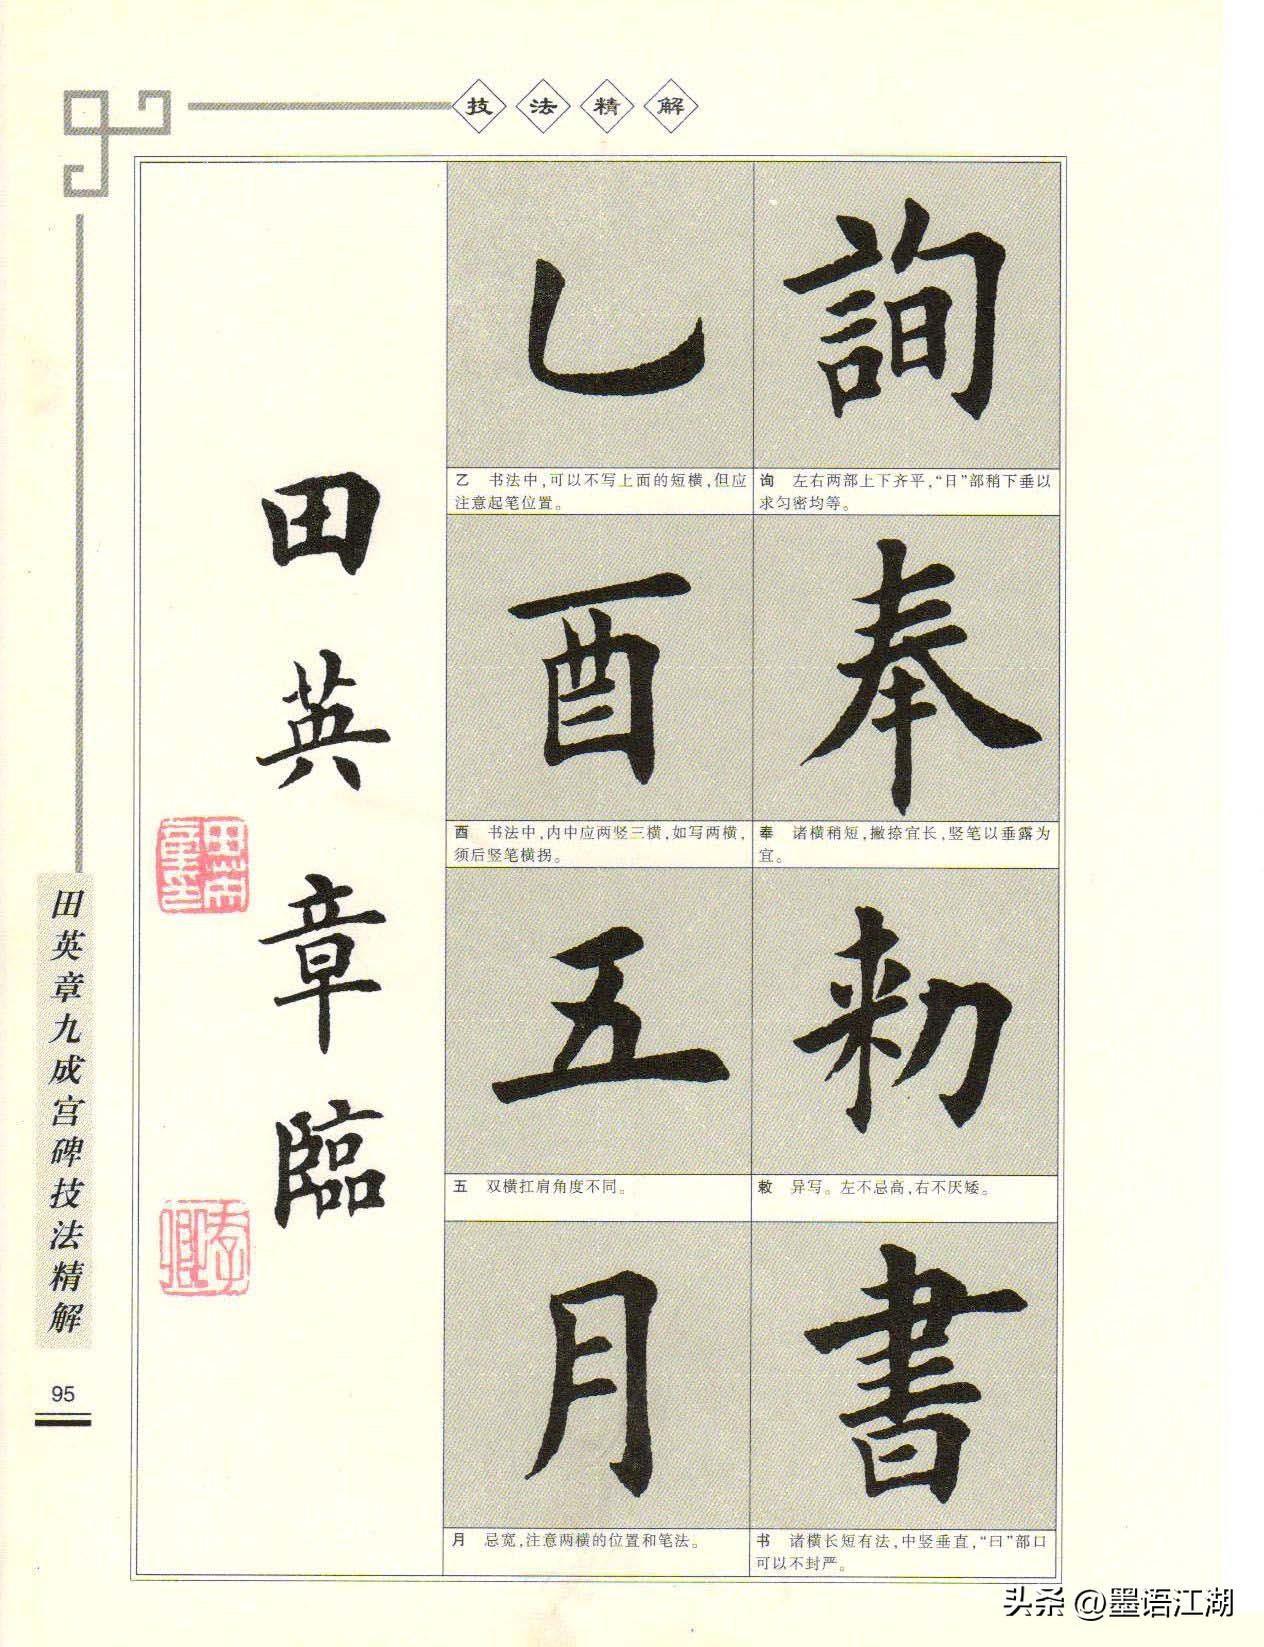 技法精解
詢
询　左右两部上下齐平，“日”部稍下垂以
求匀密均等。
奉
奉　诸横稍短，撇捺宜长，竖笔以垂露为
宜。
勑
敕　异写。左不忌高，右不厌矮。
書
书　诸横长短有法，中竖垂直，“曰”部口
可以不封严。
乙
乙　书法中，可以不写上面的短横，但应
注意起笔位置。
酉
酉　书法中，内中应两竖三横，如写两横，
须后竖笔横拐。
五
五　双横扛肩角度不同。
月
月　忌宽，注意两横的位置和笔法。
田英章臨
田英章九成宫碑技法精解
95
头条 @墨语江湖